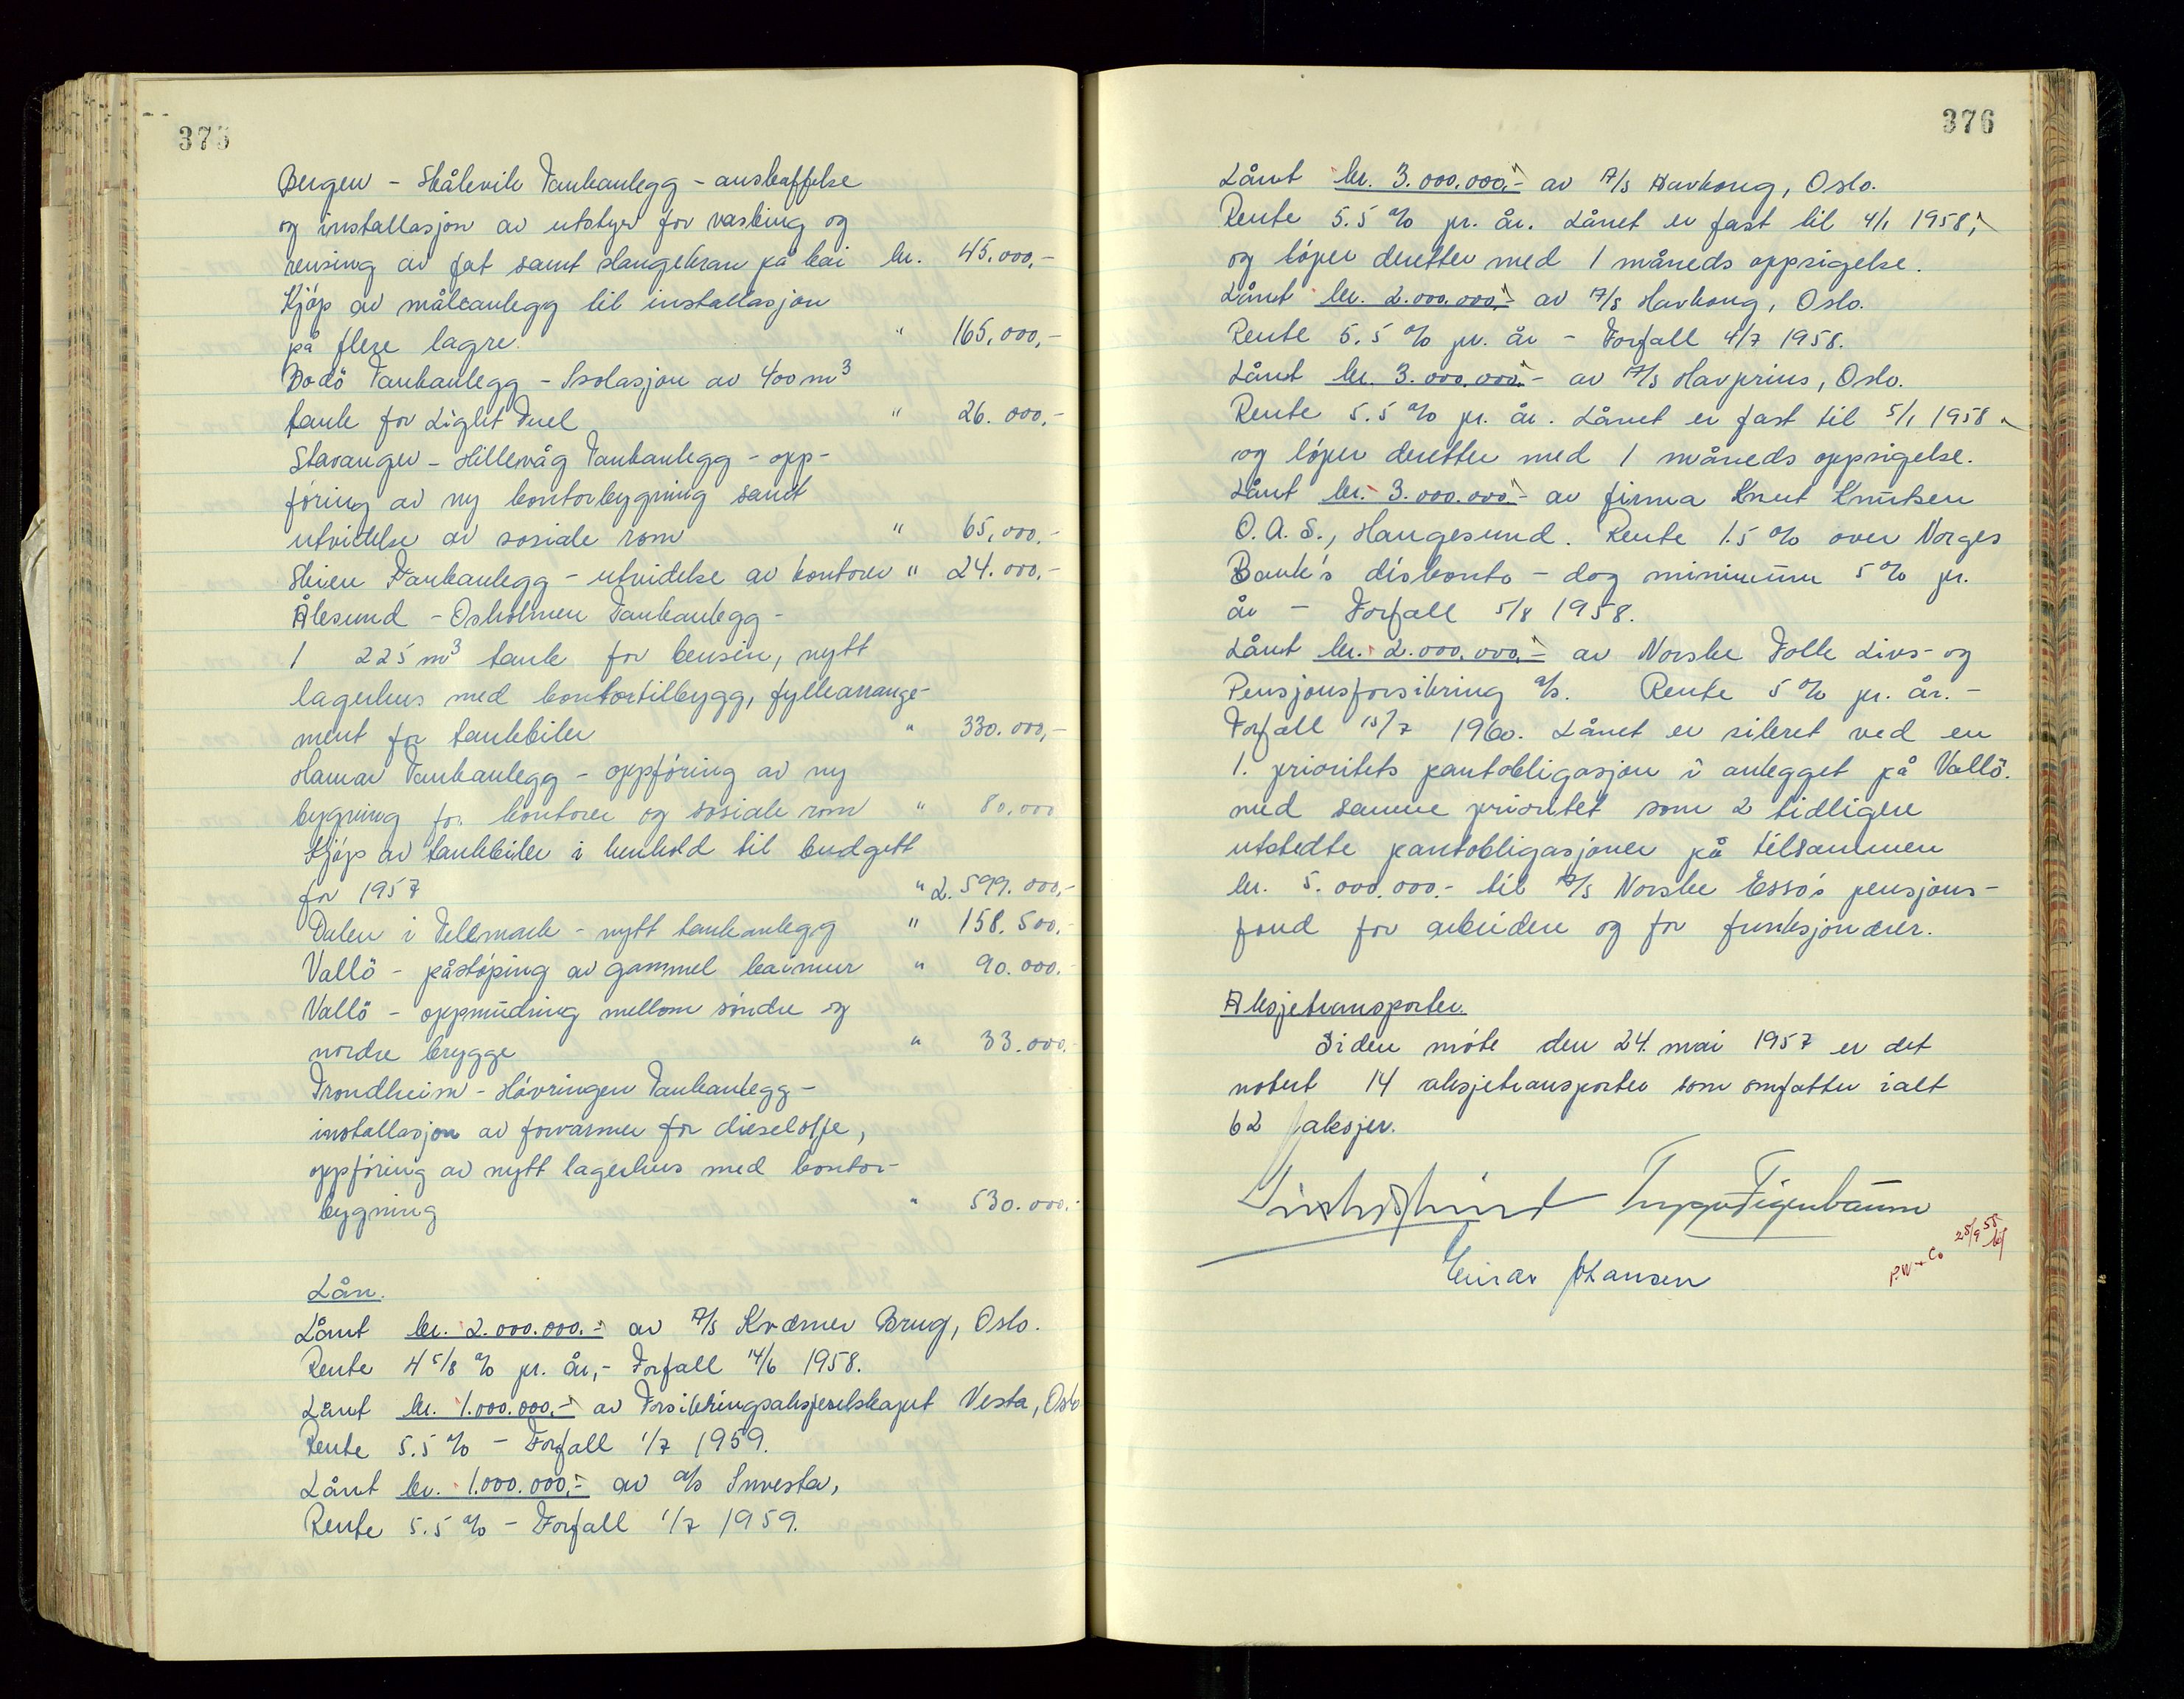 375
Bergen - Skålevik Tankanlegg - anskaffelse
og installasjon av utstyr for vasking og
rensing av fat samt slangekran på kai kr. 45.000,-
Kjöp av måleanlegg til installasjon
på flere lagre. " 165.000,-
Bodö Tankanlegg - Isolasjon av 400 m³
tank for Light Fuel " 26.000,-
Stavanger - Hillevåg Tankanlegg - opp-
föring av ny kontorbygning samt
utvidelse av sosiale rom " 65.000.-
Skien Tankanlegg - utvidelse av kontorer " 24.000,-
Ålesund - Osholmen Tankanlegg -
1 225 m³ tank for bensin, nytt
lagerhus med kontortilbygg, fyllearrange-
ment for tankbiler " 330.000,-
Hamar Tankanlegg - oppföring av ny
bygning for kontorer og sosiale rom " 80.000
Kjöp av tankbiler i henhold til budgett
for 1957 " 2.599.000,-
Dalen i Telemark - nytt tankanlegg " 158.500.-
Vallö - påstöping av gammel kaimur " 90.000.-
Vallö - oppmudring mellom söndre og
nordre brygge " 33.000.-
Trondheim - Hövringen Tankanlegg -
installasjon av forvarmer for dieselolje,
oppföring av nytt lagerhus med kontor-
bygning " 530.000.-
Lån.
Lånt kr. 2.000.000.- av A/S Kværner Brug, Oslo.
Rente 4 5/8 % pr. år,- Forfall 14/6 1958.
Lånt kr. 1.000.000.- av Forsikringsaksjeselskapet Vesta, Oslo
Rente 5.5 % - Forfall 1/7 1959.
Lånt kr. 1.000.000.- av a/s Investa,
Rente 5.5 % - Forfall 1/7 1959.
376
Lånt kr. 3.000.000.- av A/S Havkong, Oslo.
Rente 5.5 % pr. år. Lånet er fast til 4/1 1958,
og löper deretter med 1 måneds oppsigelse.
Lånt kr. 2.000.000.- av A/S Havkong, Oslo.
Rente 5.5 % pr. år - Forfall 4/7 1958.
Lånt kr. 3.000.000.- av A/S Havprins, Oslo.
Rente 5.5 % pr. år. Lånet er fast til 5/1 1958
og löper deretter med 1 måneds oppsigelse.
Lånt kr. 3.000.000.- av firma Knut Knutsen
O.A.S., Haugesund. Rente 1.5 % over Norges
Bank's diskonto - dog minimum 5 % pr.
år - Forfall 5/8 1958.
Lånt kr. 2.000.000.- av Norske Folk Livs- og
Pensjonsforsikring a/s. Rente 5 % pr. år. -
Forfall 15/7 1960. Lånet er sikret ved en
1. prioritets pantobligasjon i anlegget på Vallö.
med samme prioritet som 2 tidligere
utstedte pantobligasjoner på tilsammen
kr. 5.000.000.- til A/S Norske Esso's pensjons-
fond for arbeidere og for funksjonærer.
Aksjetransporter.
Siden möte den 24. mai 1957 er det
notert 14 aksjetransporter som omfatter ialt
62 aksjer.
Trygve Figenbaum
Einar Hansen
P.W + Co 25/9 58